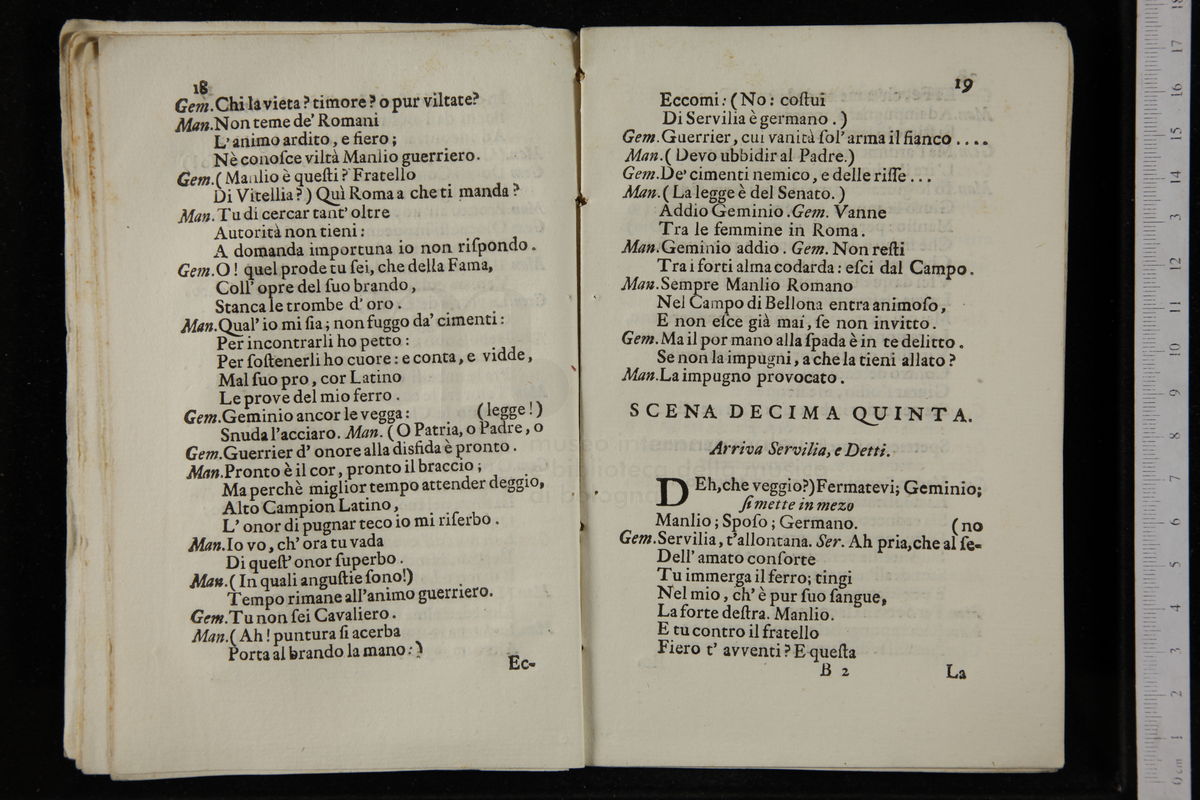 18
Gem.Chi la vieta? timore? o pur viltate?
Man.Non teme de' Romani
L'animo ardito, e fiero;
Nè conoſce viltà Manlio guerriero.
Gem.(Manlio è queſti? Fratello
Di Vitellia?) Quì Roma a che ti manda?
Man.Tu di cercar tant' oltre
Autorità non tieni:
A domanda importuna io non riſpondo.
Gem.O! quel prode tu ſei, che della Fama,
Coll' opre del ſuo brando,
Stanca le trombe d' oro.
Man.Qual' io mi ſia; non fuggo da' cimenti:
Per incontrarli ho petto:
Per ſoſtenerli ho cuore: e conta, e vidde,
Mal ſuo pro, cor Latino
Le prove del mio ferro.
Gem.Geminio ancor le vegga: (legge!)
Snuda l'acciaro. Man. (O Patria, o Padre, o
Gem.Guerrier d' onore alla disfida è pronto.
Man.Pronto è il cor, pronto il braccio;
Ma perchè miglior tempo attender deggio,
Alto Campion Latino,
L' onor di pugnar teco io mi riſerbo.
Man.Io vo, ch' ora tu vada
Di queſt' onor ſuperbo.
Man.(In quali anguſtie ſono!)
Tempo rimane all'animo guerriero.
Gem.Tu non ſei Cavaliero.
Man.(Ah! puntura ſi acerba
Porta al brando la mano:)
Ec-
19
Eccomi: (No: coſtui
Di Servilia è germano.)
Gem.Guerrier, cui vanità ſol' arma il fianco....
Man.(Devo ubbidir al Padre.)
Gem.De' cimenti nemico, e delle riſſe...
Man.(La legge è del Senato.)
Addio Geminio.Gem. Vanne
Tra le femmine in Roma.
Man.Geminio addio. Gem. Non reſti
Tra i forti alma codarda: eſci dal Campo.
Man.Sempre Manlio Romano
Nel Campo di Bellona entra animoſo,
E non eſce già mai, ſe non invitto.
Gem.Ma il por mano alla ſpada è in te delitto.
Se non la impugni, a che la tieni allato?
Man.La impugno provocato.
SCENA DECIMA QUINTA.
Arriva Servilia, e Detti.
DEh,che veggio?)Fermatevi; Geminio;
ſi mette in mezo
Manlio; Spoſo; Germano. (no
Gem.Servilia, t'allontana. Ser. Ah pria,che al ſe-
Dell' amato conſorte
Tu immerga il ferro; tingi
Nel mio, ch' è pur ſuo ſangue,
La forte deſtra. Manlio.
E tu contro il fratello
Fiero t' avventi? E queſta
B 2
La
museo internazionale
e biblioteca della musica
di bologna